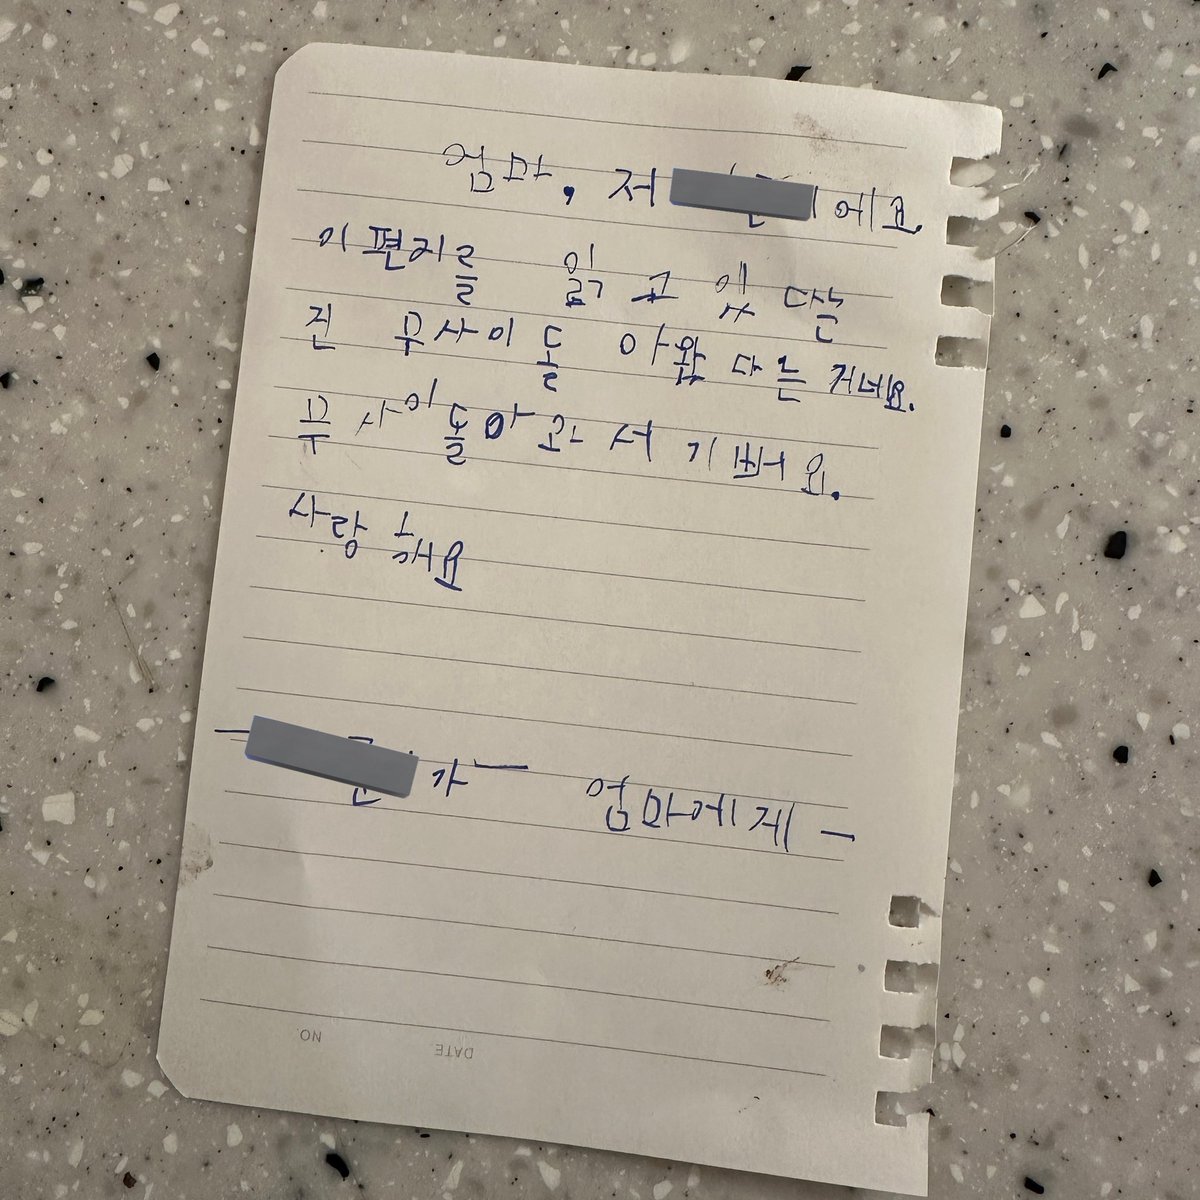 엄마, 저 이에요
이 편지를 읽고 있다는
진 무사이 돌아왔다는 거네요.
무사이 돌아와서 기뻐요.
사랑해요
— 가— 엄마에게 —
NO.
DATE.